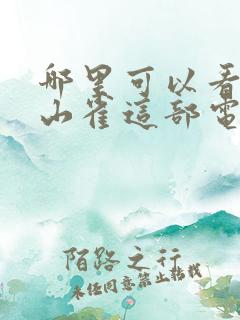 哪里可以看
山雀這部電
陌路之行
未经同意禁止转载